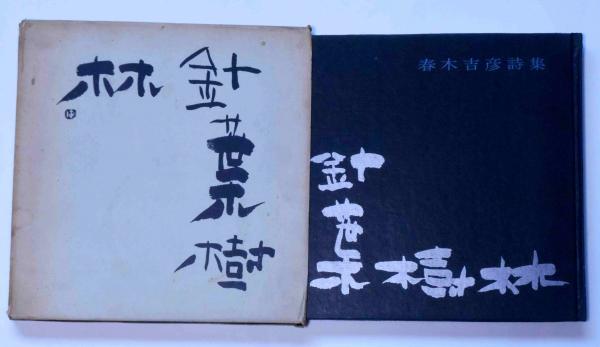 針葉樹
林
は
春木吉彦詩集
針葉樹林